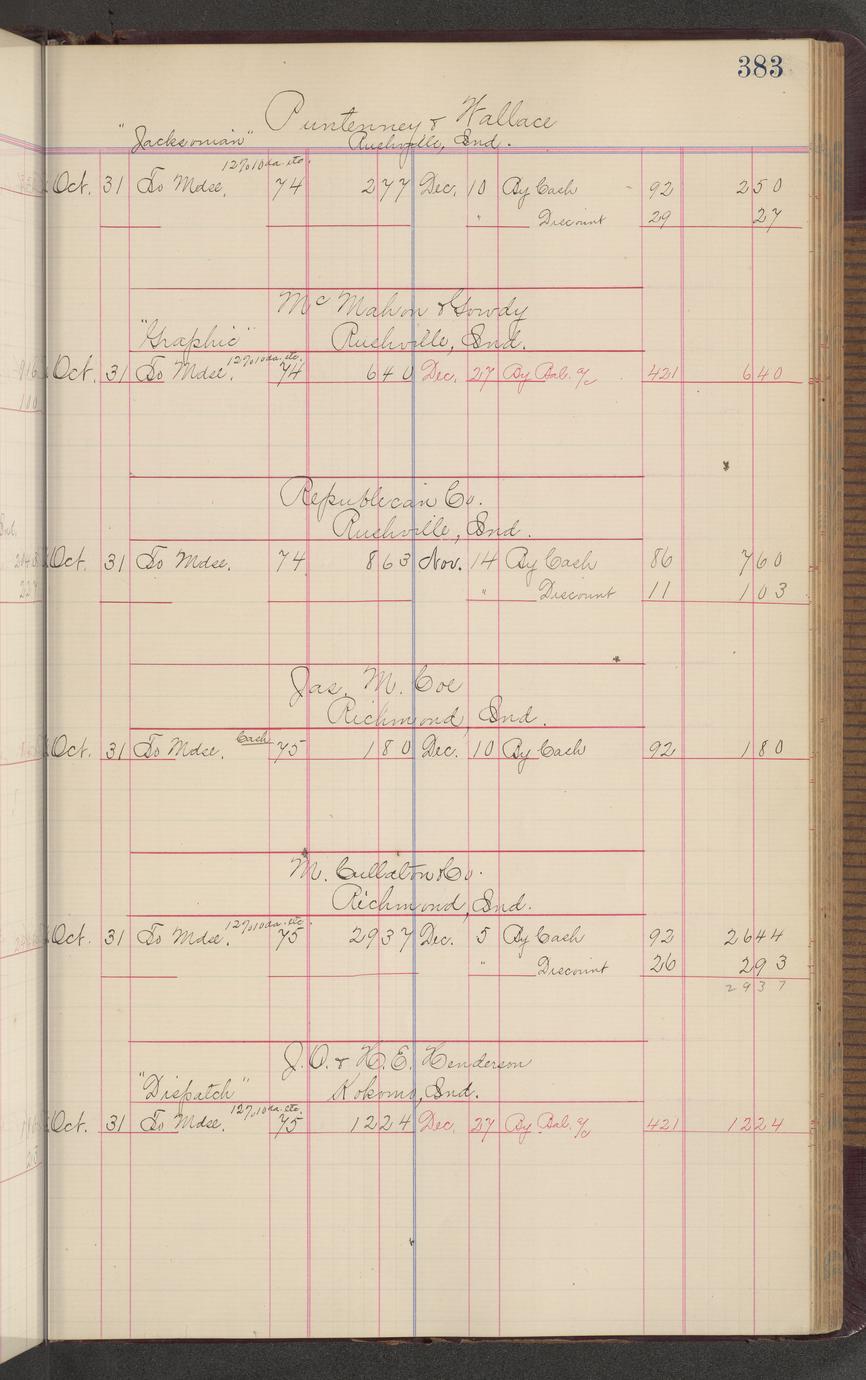 383
Puntenney & Wallace
"Jacksonian" Rushville, Ind.
12% 10 da. etc.
Oct. 31 To Mdse. 74 277 Dec. 10 By Cash 92 250
" Discount 29 27
McMahon & Gowdy
"Graphic" Rushville, Ind.
12% 10 da. etc.
Oct. 31 To Mdse. 74 640 Dec. 27 By Bal. a/c 421 640
Republican Co.
Rushville, Ind.
Oct. 31 To Mdse. 74 863 Nov. 14 By Cash 86 760
" Discount 11 103
Jas. M. Coe
Richmond, Ind.
Oct. 31 To Mdse. Cash 75 180 Dec. 10 By Cash 92 180
M. Cullaton & Co.
Richmond, Ind.
12% 10 da. etc.
Oct. 31 To Mdse. 75 2937 Dec. 5 By Cash 92 2644
" Discount 26 293
2937
J. O. & H. E. Henderson
"Dispatch" Kokomo, Ind.
12% 10 da. etc.
Oct. 31 To Mdse. 75 1224 Dec. 27 By Bal. a/c 421 1224